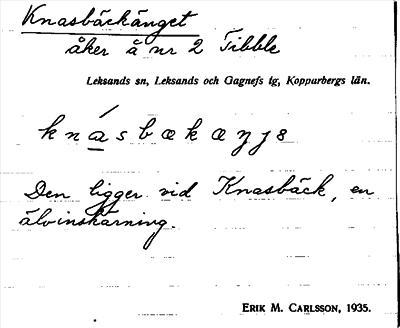 Knasbäckänget
åker å nr 2 Tibble
Leksands sn, Leksands och Gagnefs tg, Kopparbergs län.
Den ligger vid Knasbäck, en
älvinskärning.
ERIK M. CARLSSON, 1935.